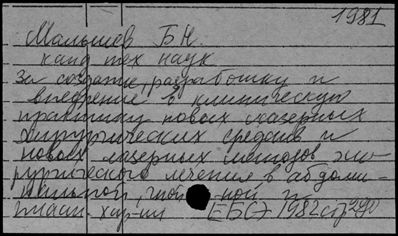 1981
Малышев Б Н
канд тех наук
За создание, разработку и
внедрение в клиническую
практику новых лазерных
хирургических средств и
новых лазерных методов хи-
рургического лечения в абдоми-
нальной, гной-ной и
пласт. хир-ии ЕБСЭ 1982 стр 290